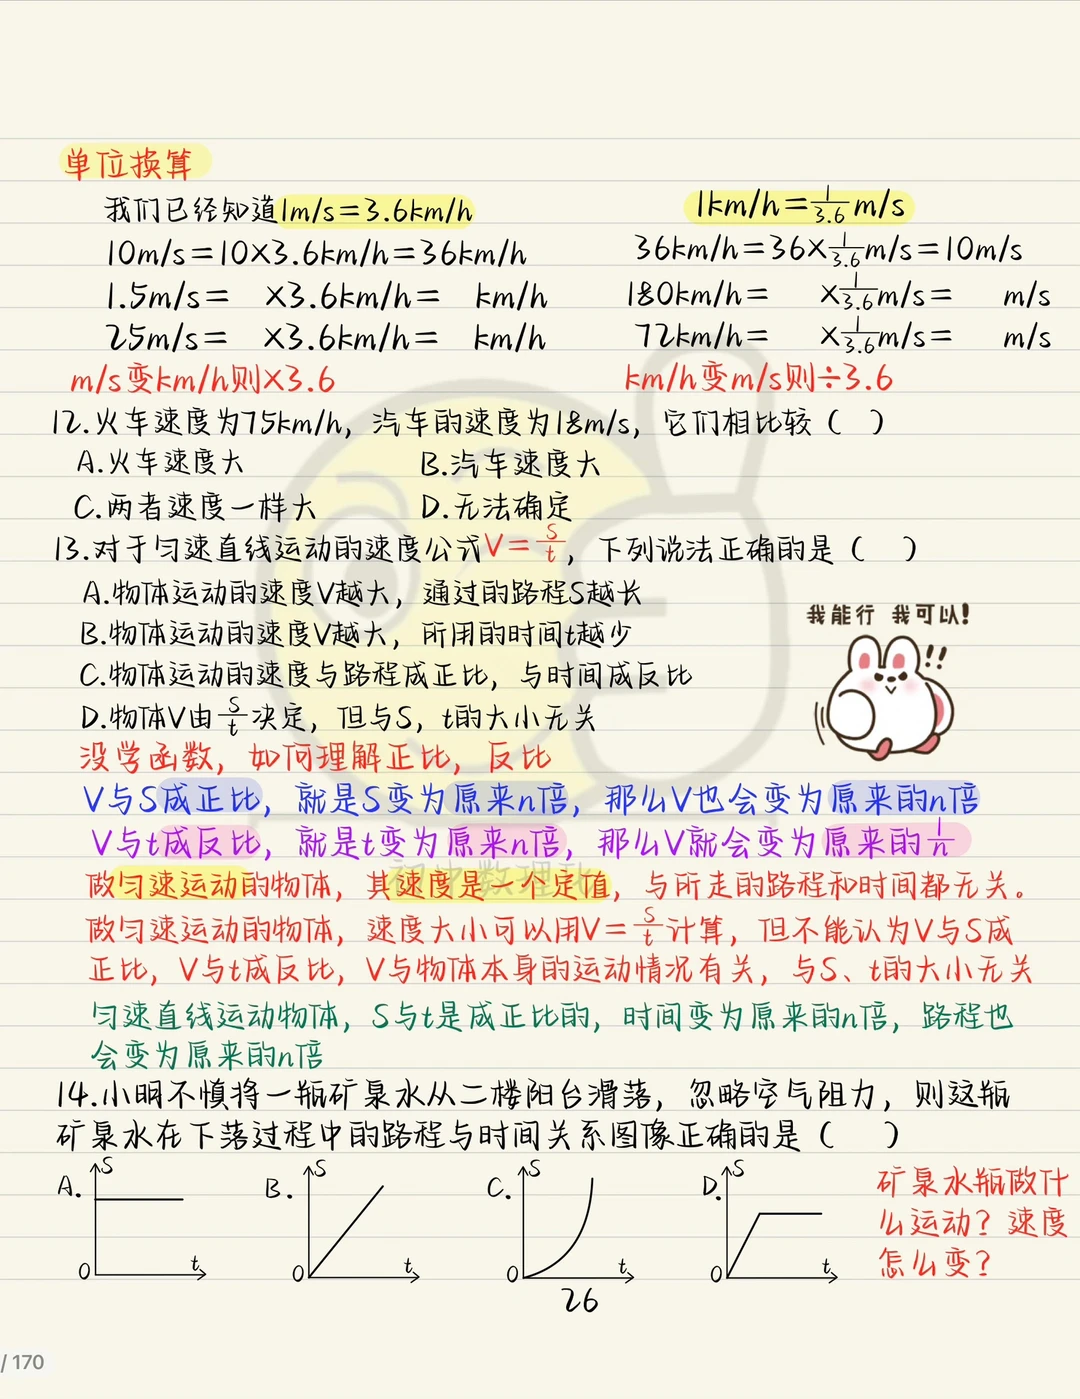 单位换算
我们已经知道1m/s=3.6km/h
1km/h=1/3.6 m/s
10m/s=10×3.6km/h=36km/h
36km/h=36×1/3.6 m/s=10m/s
1.5m/s= ×3.6km/h= km/h
180km/h= ×1/3.6 m/s= m/s
25m/s= ×3.6km/h= km/h
72km/h= ×1/3.6 m/s= m/s
m/s变km/h则×3.6
km/h变m/s则÷3.6
12.火车速度为75km/h，汽车的速度为18m/s，它们相比较（ ）
A.火车速度大 B.汽车速度大
C.两者速度一样大 D.无法确定
13.对于匀速直线运动的速度公式V=S/t，下列说法正确的是（ ）
A.物体运动的速度V越大，通过的路程S越长
B.物体运动的速度V越大，所用的时间t越少
C.物体运动的速度与路程成正比，与时间成反比
D.物体V由S/t决定，但与S，t的大小无关
我能行 我可以!
!!
没学函数，如何理解正比，反比
V与S成正比，就是S变为原来n倍，那么V也会变为原来的n倍
V与t成反比，就是t变为原来n倍，那么V就会变为原来的1/n
初中数理化
做匀速运动的物体，其速度是一个定值，与所走的路程和时间都无关。
做匀速运动的物体，速度大小可以用V=S/t计算，但不能认为V与S成
正比，V与t成反比，V与物体本身的运动情况有关，与S、t的大小无关
匀速直线运动物体，S与t是成正比的，时间变为原来的n倍，路程也
会变为原来的n倍
14.小明不慎将一瓶矿泉水从二楼阳台滑落，忽略空气阻力，则这瓶
矿泉水在下落过程中的路程与时间关系图像正确的是（ ）
A. S t 0
B. S t 0
C. S t 0
D. S t 0
矿泉水瓶做什
么运动？速度
怎么变？
26
/ 170